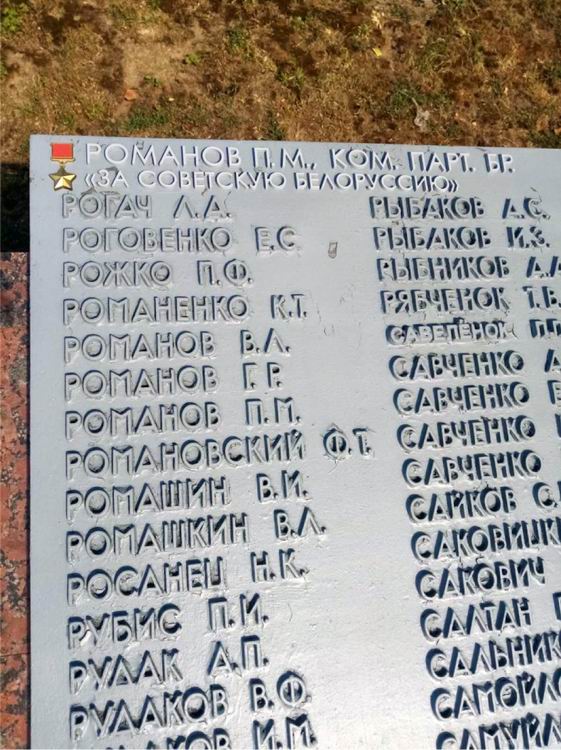 РОМАНОВ П.М., КОМ. ПАРТ. БР.
«ЗА СОВЕТСКУЮ БЕЛОРУССИЮ»
РОГАЧ Л.А.
РОГОВЕНКО Е.С.
РОЖКО П.Ф.
РОМАНЕНКО К.Т.
РОМАНОВ В.Л.
РОМАНОВ Г.Р.
РОМАНОВ П.М.
РОМАНОВСКИЙ Ф.Т.
РОМАШИН В.И.
РОМАШКИН В.Л.
РОСАНЕЦ Н.К.
РУБИС П.И.
РУДАК А.П.
РУДАКОВ В.Ф.
И.М.
РЫБАКОВ А.С.
РЫБАКОВ И.З.
РЫБНИКОВ А.А
РЯБЧЕНОК Т.В.
САВЕЛЁНОК
САВЧЕНКО А
САВЧЕНКО
САВЧЕНКО
САВЧЕНКО
САЙКОВ С.
САКОВИЦК
САКОВИЧ
САЛТАН
САЛЬНИК
САМОЙЛ
САМУЙЛ